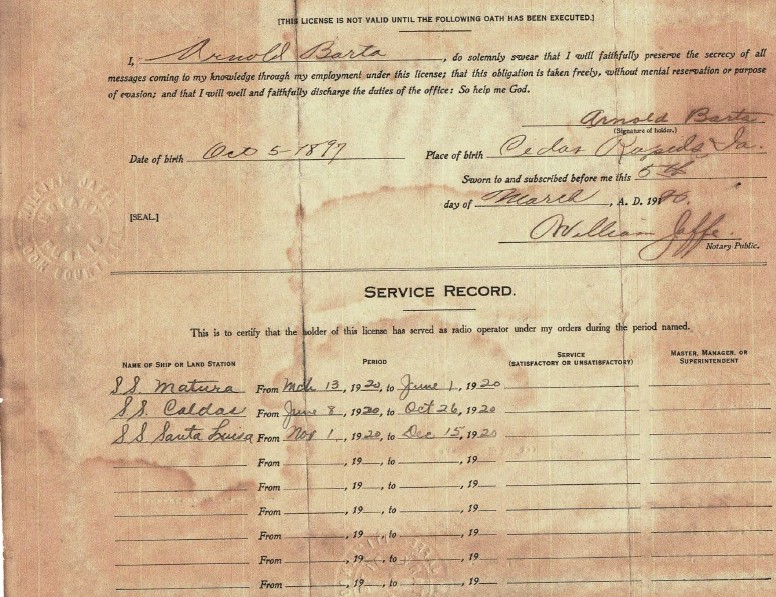 [THIS LICENSE IS NOT VALID UNTIL THE FOLLOWING OATH HAS BEEN EXECUTED.]
I, Arnold Barta, do solemnly swear that I will faithfully preserve the secrecy of all
messages coming to my knowledge through my employment under this license; that this obligation is taken freely, without mental reservation or purpose
of evasion; and that I will well and faithfully discharge the duties of the office: So help me God.
Arnold Barta
(Signature of holder.)
Date of birth Oct 5-1897 Place of birth Cedar Rapids, Ia.
Sworn to and subscribed before me this 5th
day of March, A. D. 19
[SEAL.]
William Jaffe.
Notary Public.
SERVICE RECORD.
This is to certify that the holder of this license has served as radio operator under my orders during the period named.
NAME OF SHIP OR LAND STATION PERIOD SERVICE (SATISFACTORY OR UNSATISFACTORY) MASTER, MANAGER, OR SUPERINTENDENT
SS. Matura From Mch 13, 1920, to June 1, 1920
SS. Caldas From June 8, 1920, to Oct 26, 1920
SS Santa Luisa From Nov 1, 1920, to Dec 15, 1920
From , 19 , to , 19
From , 19 , to , 19
From , 19 , to , 19
From , 19 , to , 19
From , 19 , to , 19
From , 19 , to , 19